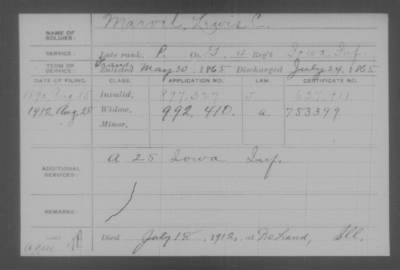 NAME OF SOLDIER: Marvel, Lewis C.
SERVICE: Late rank, P. Co. I, 4 Reg't Iowa Inf.
TERM OF SERVICE: Enlisted May 30, 1865 Discharged July 24, 1865
DATE OF FILING. CLASS. APPLICATION NO. LAW. CERTIFICATE NO.
Invalid,
1912 Aug 28 Widow, 992.410. a. 753399
Minor,
ADDITIONAL SERVICES: A 25 Iowa Inf.
REMARKS:
Died July 18, 1912, at DeLand, Ill.